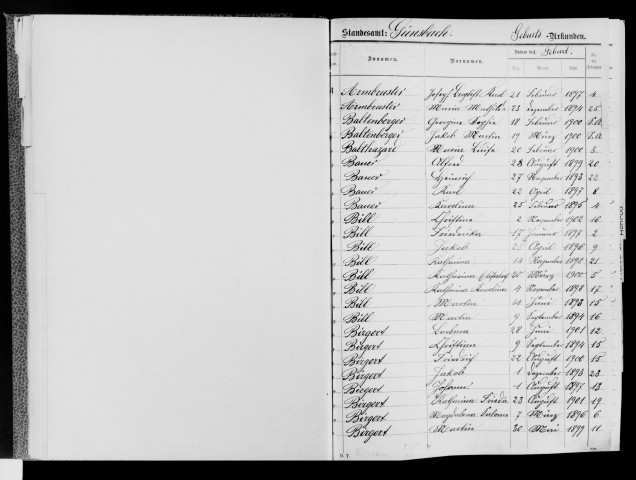 Standesamt: Günsbach. Geburts-Urkunden.
Zunamen. Vornamen. Datum der Geburt.
Tag. Monat. Jahr.
Armbruster Josef August Karl 21 Februar 1897 4.
Armbruster Maria Mathilde 23 Dezember 1894 25
Baltenberger Georgine Sophie 18 Februar 1900
Baltenberger Jakob Martin 19 März 1900
Balthazard Maria Luise 20 Februar 1900 3.
Bauer Alfred 28 August 1899 20
Bauer Heinrich 27 November 1893 22
Bauer Karl 22 April 1897 8
Bauer Karolina 25 Februar 1895 4
Bill Christine 2 November 1902 16
Bill Friederika 17 Januar 1897 2
Bill Jakob 21 April 1896 9
Bill Katharina 14 November 1898 21
Bill Katharina Elisabeth 30 März 1900 5
Bill Katharina Karolina 4 November 1898 17
Bill Martin 14 Juni 1893 15
Bill Martin 9 September 1894 16
Birgert Barbara 28 Juni 1901 12
Birgert Christina 9 September 1894 15
Birgert Friedrich 22 August 1900 15
Birgert Jakob 1 Dezember 1893 23
Birgert Johann 1 August 1897 13
Birgert Katharina Frieda 23 August 1901 19
Birgert Magdalena Salome 7 März 1896 6
Birgert Martin 30 Mai 1899 11